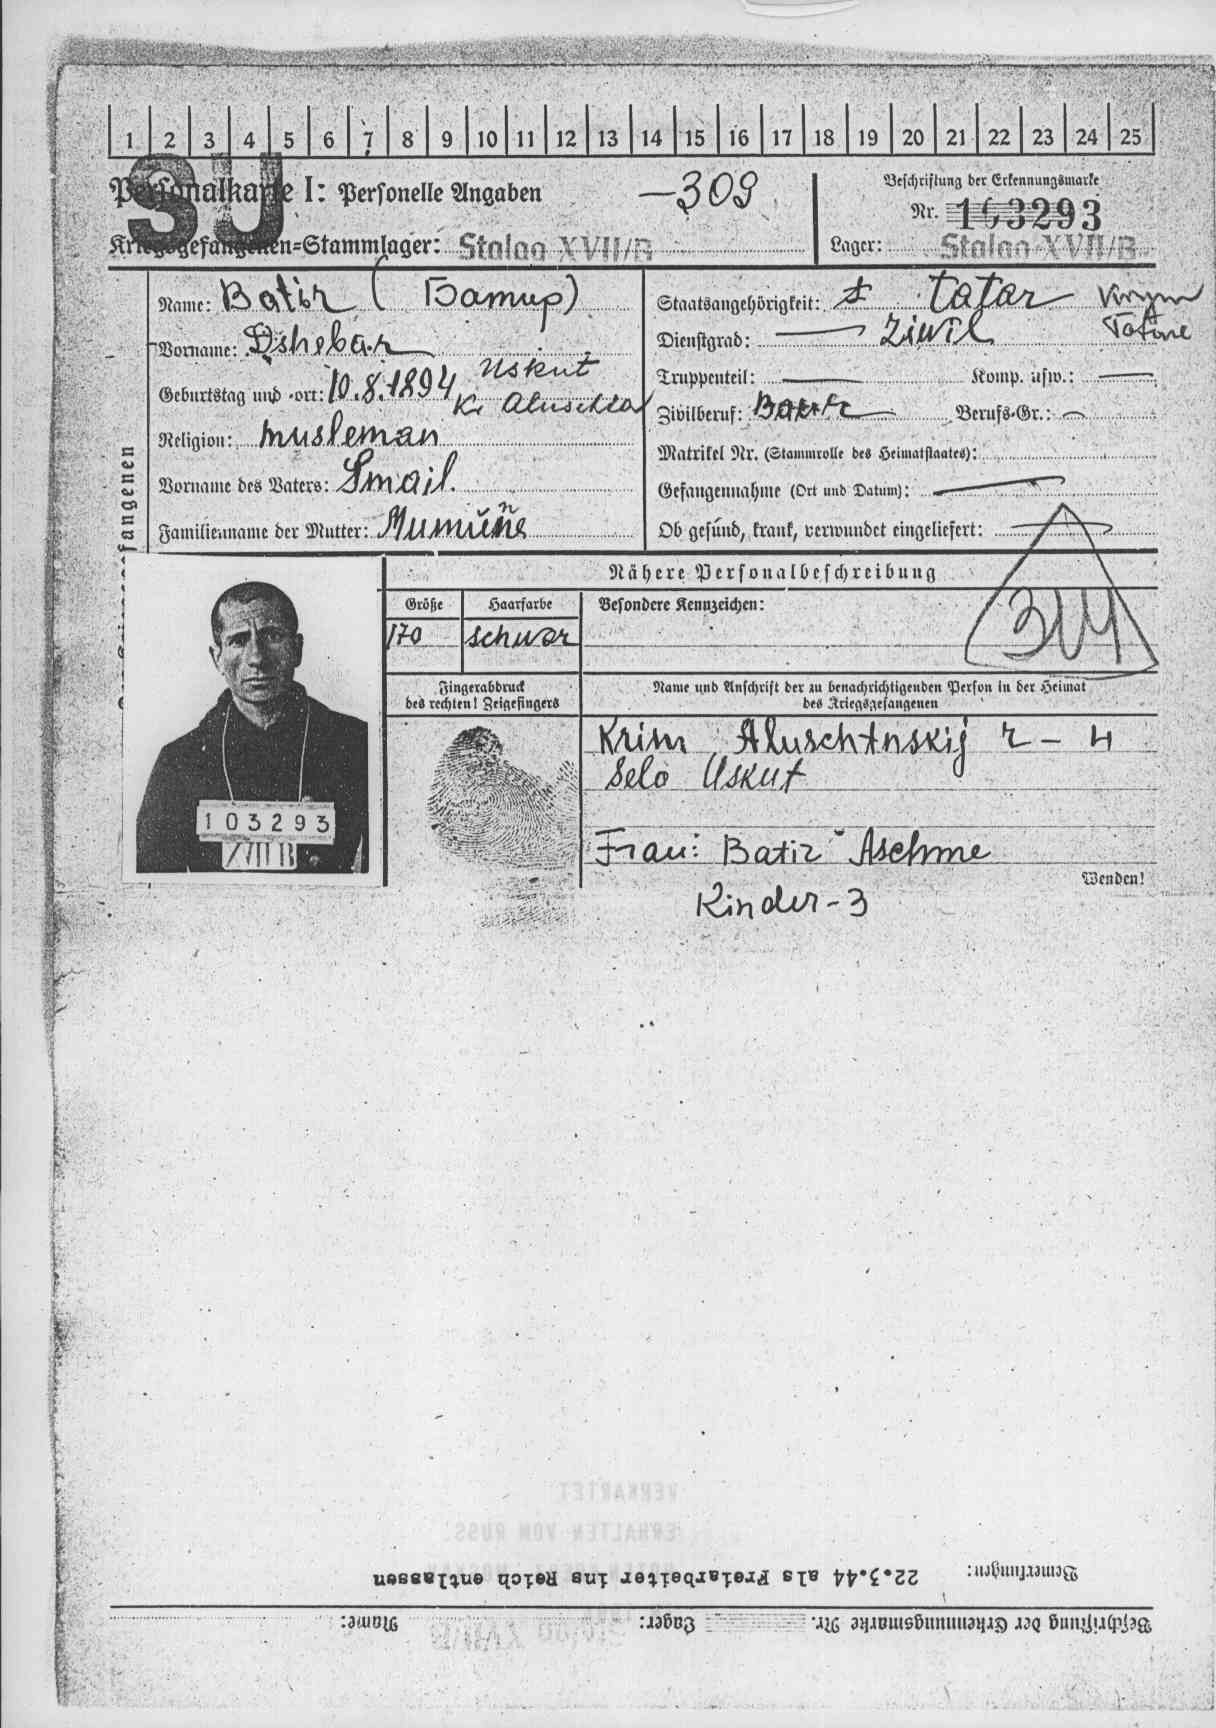 1 2 3 4 5 6 7 8 9 10 11 12 13 14 15 16 17 18 19 20 21 22 23 24 25
SU
Personalkarte I: Personelle Angaben
—309
Beschriftung der Erkennungsmarke
Nr. 103293
Kriegsgefangenen-Stammlager: Stalag XVII/B
Lager: Stalag XVII/B
Name: Batir (Батир)
Vorname: Dshebar
Geburtstag und -ort: 10.8.1894 Uskut
Kr Aluschta
Religion: musleman
Vorname des Vaters: Smail.
Familienname der Mutter:
Staatsangehörigkeit: Tatar
Dienstgrad: — Ziwil
Truppenteil: — Komp. usw.: —
Zivilberuf: Berufs-Gr.: —
Matrikel Nr. (Stammrolle des Heimatstaates):
Gefangennahme (Ort und Datum): —
Ob gesund, krank, verwundet eingeliefert: —
Nähere Personalbeschreibung
Größe Haarfarbe Besondere Kennzeichen:
170 schwar
Fingerabdruck
des rechten! Zeigefingers
Name und Anschrift der zu benachrichtigenden Person in der Heimat
des Kriegsgefangenen
Krim Aluschtnskij r – 4
Selo Uskut
Frau: Batir Aschme
Wenden!
Kinder - 3
103293
XVII B
VERKARTET
ERHALTEN VOM RUSS.
Bemerkungen: 22.3.44 als Freiarbeiter ins Reich entlassen
Beschriftung der Erkennungsmarke Nr. Lager: Name: